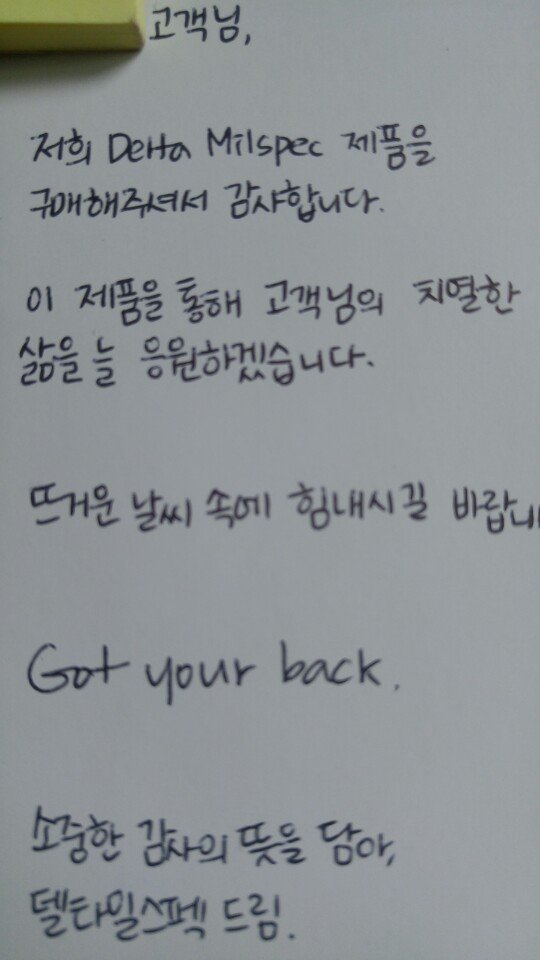 고객님,
저희 Delta Milspec 제품을
구매해주셔서 감사합니다.
이 제품을 통해 고객님의 치열한
삶을 늘 응원하겠습니다.
뜨거운 날씨 속에 힘내시길 바랍니
Got your back.
소중한 감사의 뜻을 담아,
델타밀스펙 드림.